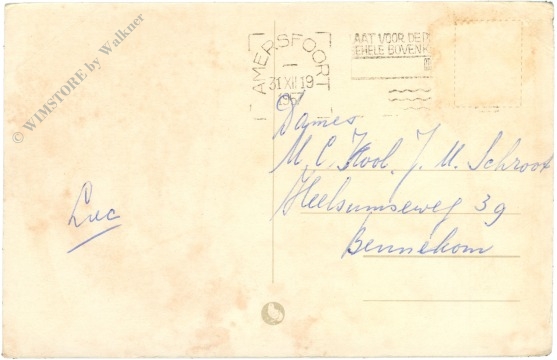 © WIMSTORE by Walkner
AMERSFOORT
31 XII 19
AAT VOOR DE
EHELE BOVEN
Dames
M. C. Kool. J. M. Schroot
Heelsumseweg 39
Bennekom
Luc